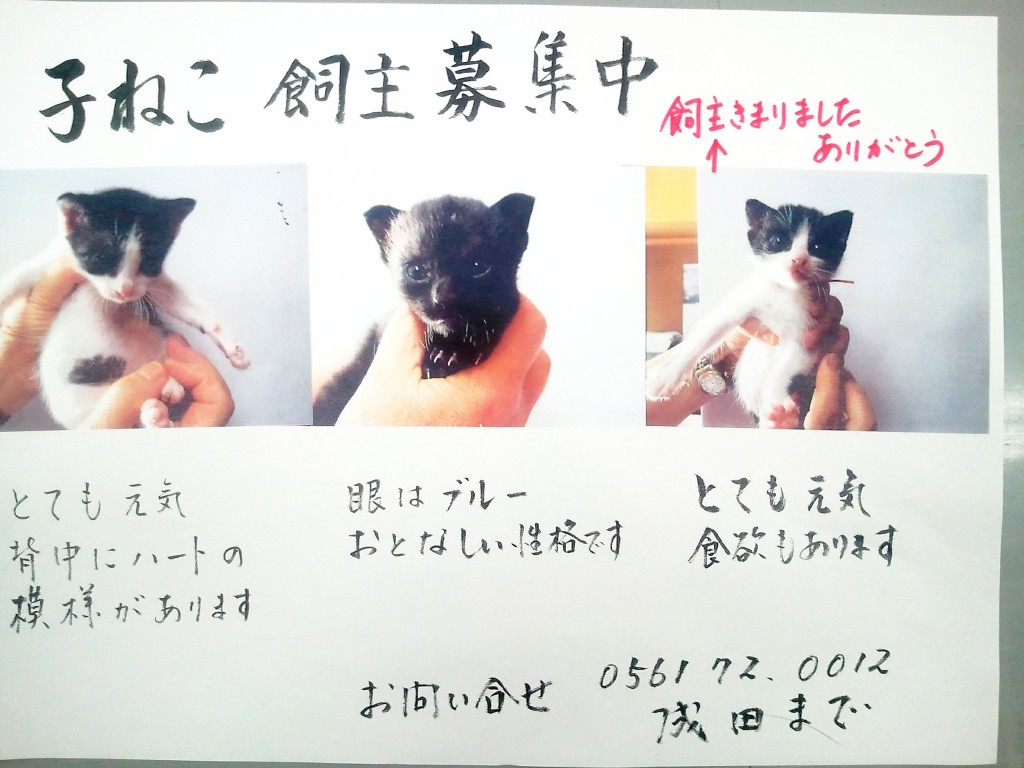 子ねこ 飼主募集中
飼主きまりました
ありがとう
↑
とても元気
背中にハートの
模様があります
眼はブルー
おとなしい性格です
とても元気
食欲もあります
お問い合せ
0561 72.0012
成田まで